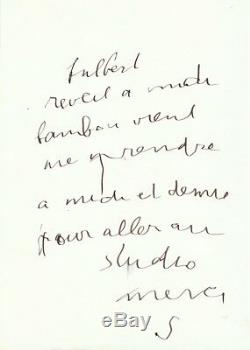 fulbert
reveil a midi
bambou vient
me prendre
a midi et demie
pour aller au
studio
merci
S
ebay